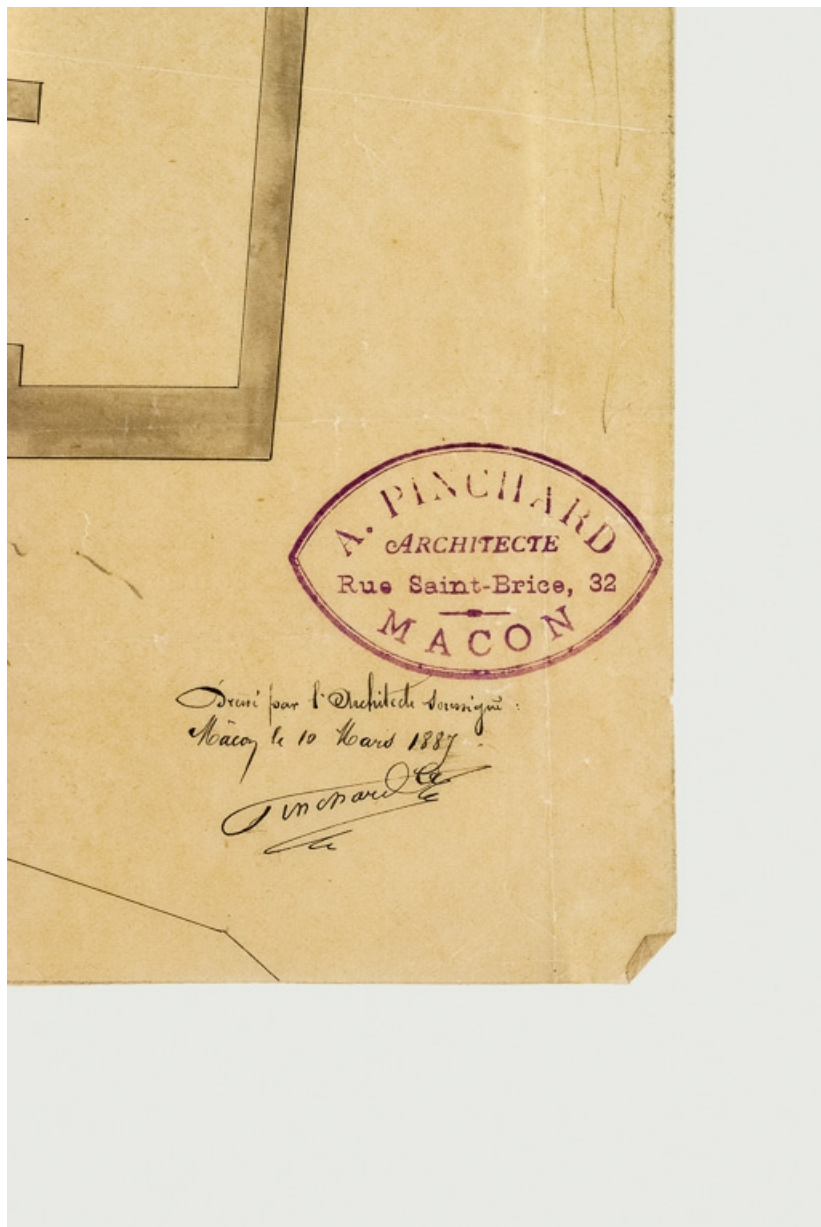 A. PINCHARD
ARCHITECTE
Rue Saint-Brice, 32
MACON
Dressé par l'Architecte soussigné :
Mâcon le 10 Mars 1887.
Pinchard